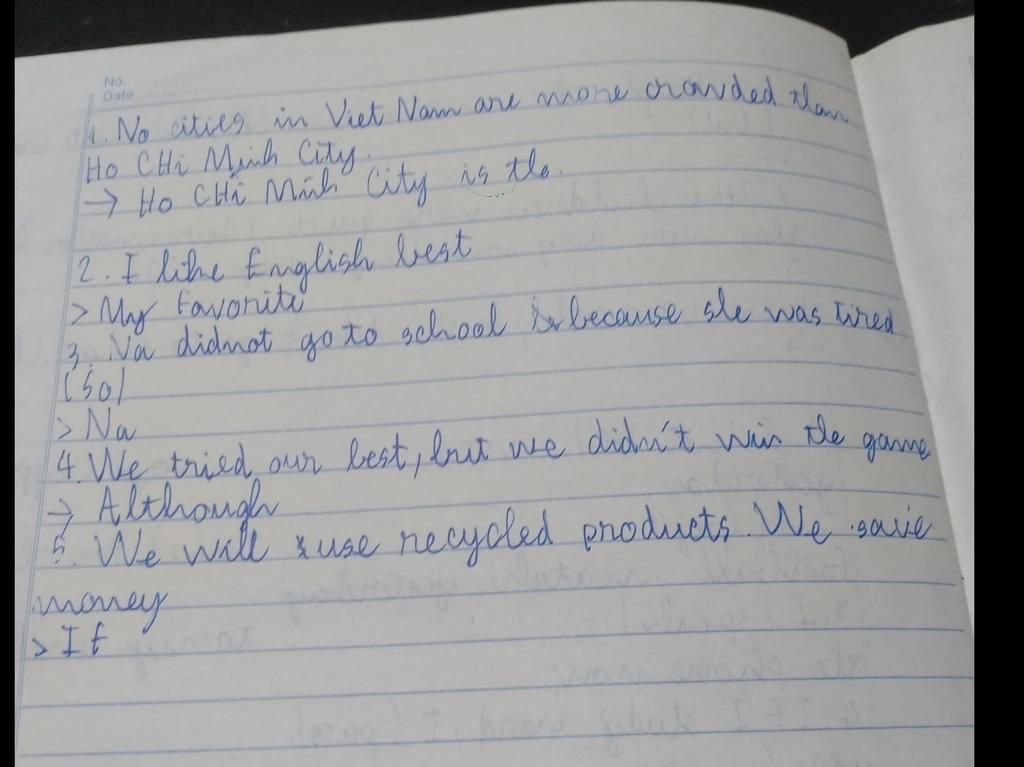 No.
Date
1. No cities in Viet Nam are more crowded than
Ho CHi Minh City.
→ Ho CHi Minh City is the.
2. I like English best
> My Favorite
3. Na didnot go to school because she was tired
(so)
> Na
4. We tried our best, but we didn't win the game
→ Although
5. We will use recycled products. We save
money
> If